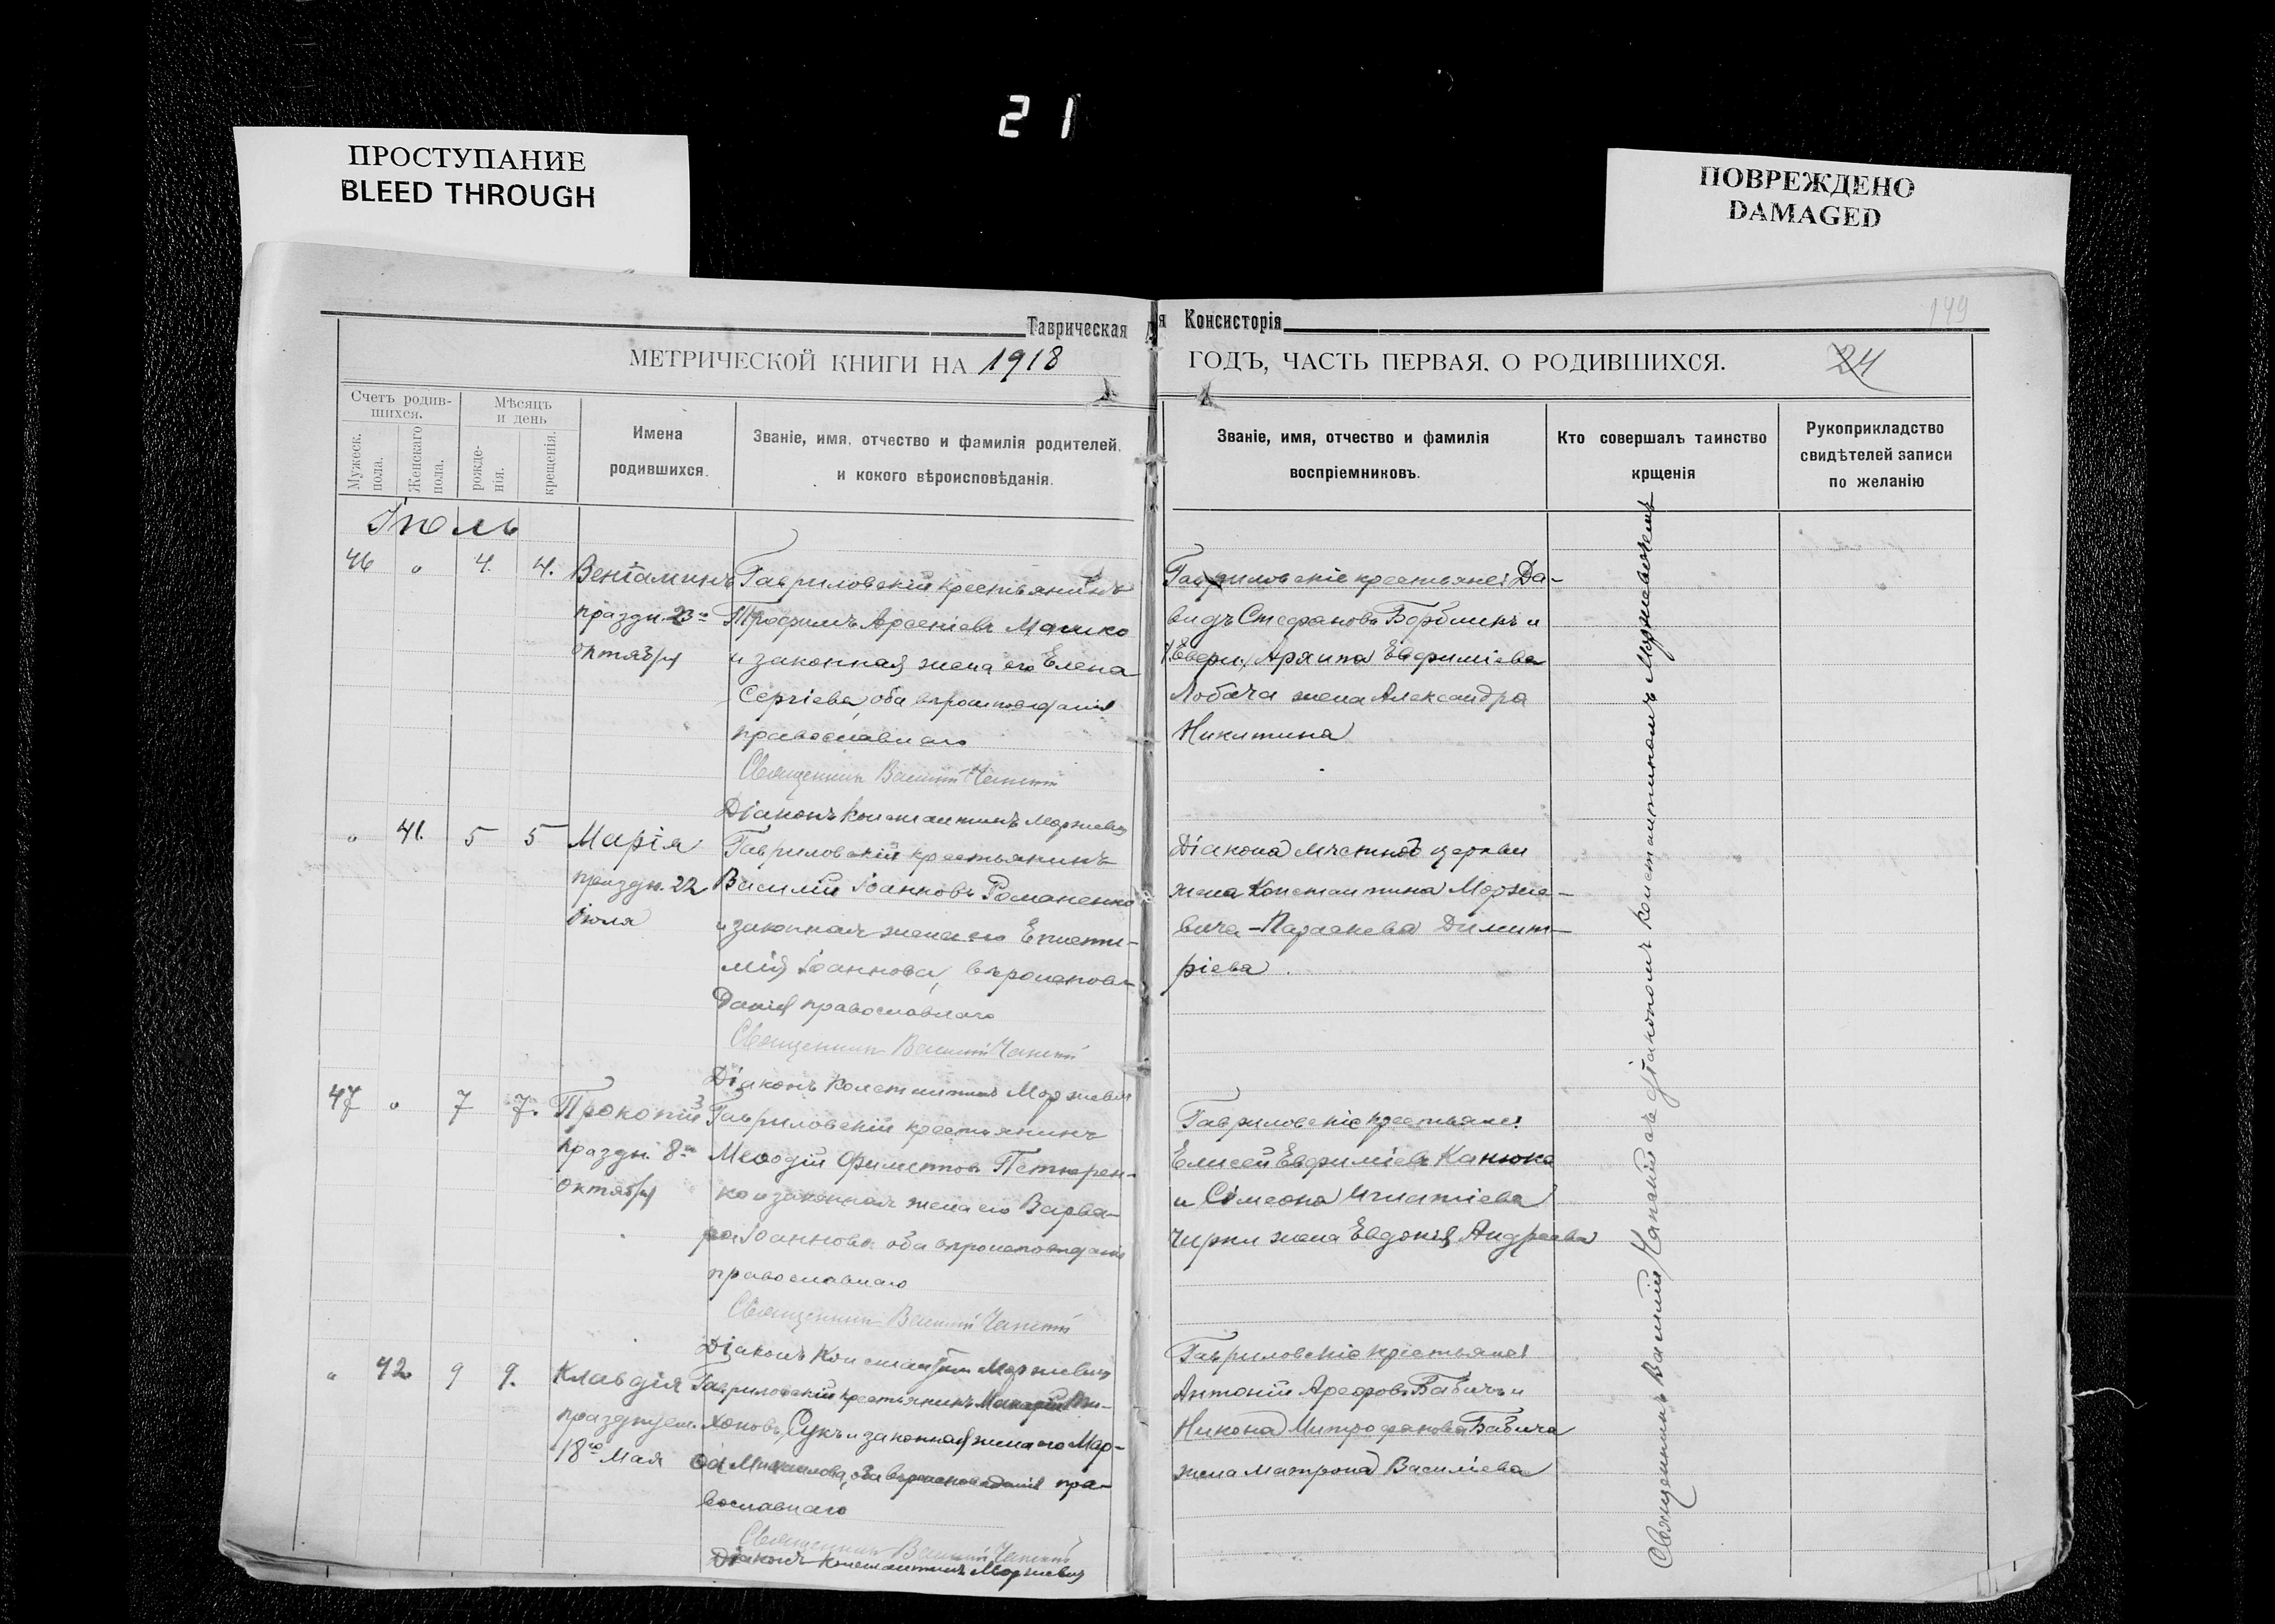 21
ПРОСТУПАНИЕ
BLEED THROUGH
ПОВРЕЖДЕНО
DAMAGED
149
Таврическая
МЕТРИЧЕСКОЙ КНИГИ НА 1918
Счетъ родив-
шихся.
Мужеск.
пола.
Женскаго
пола.
Мѣсяцъ
и день
рожде-
нія.
крещенія.
Имена
родившихся.
Званіе, имя, отчество и фамилія родителей,
и кокого вѣроисповѣданія.
Іюль
46 " 4. 4. Веніаминъ
праздн. 23го
октября
Гавриловскій крестьянинъ
Трофимъ Арсеніевъ Машко
и законная жена его Елена
Сергіева, оба вѣроисповѣданія
православнаго
Священникъ Василій
Діаконъ Константинъ Моржевич
" 41. 5 5 Марія
праздн. 22
Іюля
Гавриловскій крестьянинъ
Василій Іоанновъ Романенко
и законная жена его Еписти-
мія Іоаннова, вѣроисповѣ-
данія православнаго
Священникъ Василій
Діаконъ Константинъ Моржевич
47 " 7 7. Прокопій
праздн. 8го
Октября
Гавриловскій крестьянинъ
Меѳодій Филиппов Петнарен-
ко и законная жена его Варва-
ра Іоаннова оба вѣроисповѣданія
православнаго
Священникъ Василій
Діаконъ Константин Моржевич
" 42 9 9. Клавдія
празднуем.
18го Мая
Гавриловскій крестьянинъ
хоновъ Сукъ и законная жена его Мар-
Михаилова, оба вѣроисповѣданія пра-
вославнаго
Священникъ Василій
Діаконъ Константинъ Моржевич
я Консисторія
ГОДЪ, ЧАСТЬ ПЕРВАЯ, О РОДИВШИХСЯ.
24
Званіе, имя, отчество и фамилія
воспріемниковъ.
Кто совершалъ таинство
крщенія
Рукоприкладство
свидѣтелей записи
по желанію
Гавриловскіе крестьяне: Да-
видъ Стефановъ и
Архипа Евфиміева
Лобача жена Александра
Никитина
Діакона мѣстной церкви
жена Константина Морже-
вича - Параскева Димит-
ріева.
Гавриловскіе крестьяне:
Елисей Евфиміевъ Канюка
и Сімеона Игнатіева
Чирки жена Евдокія Андреева
Гавриловскіе крестьяне:
Антоній Арефовъ Бабичъ и
Никона Митрофанова Бабича
жена Матрона Василіева
Священникъ Василій съ діакономъ Константиномъ Моржевичемъ